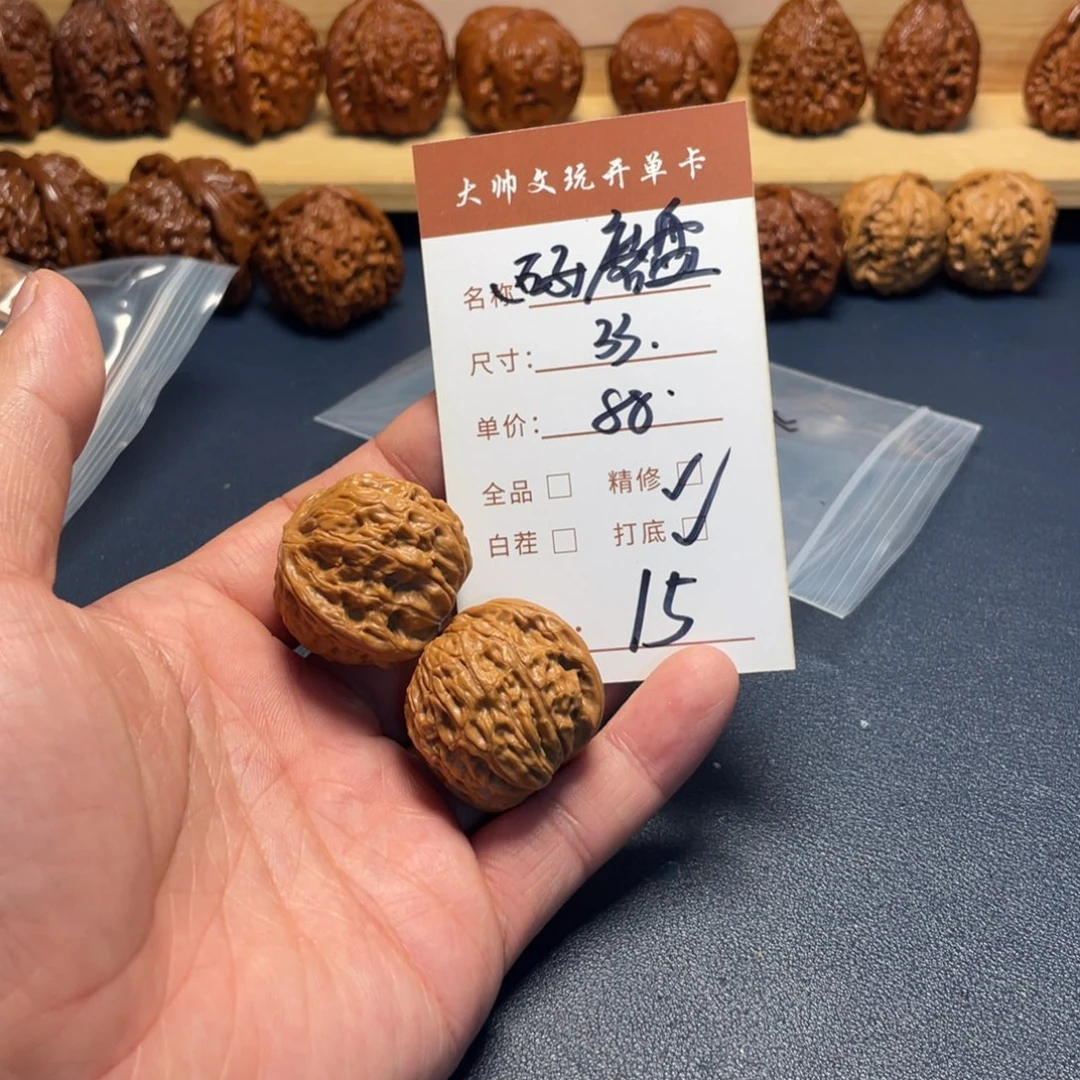 大帅文玩开单卡
名称 磨盘
尺寸: 35.
单价: 80.
全品 □ 精修 ✓
白茬 □ 打底 ✓
15